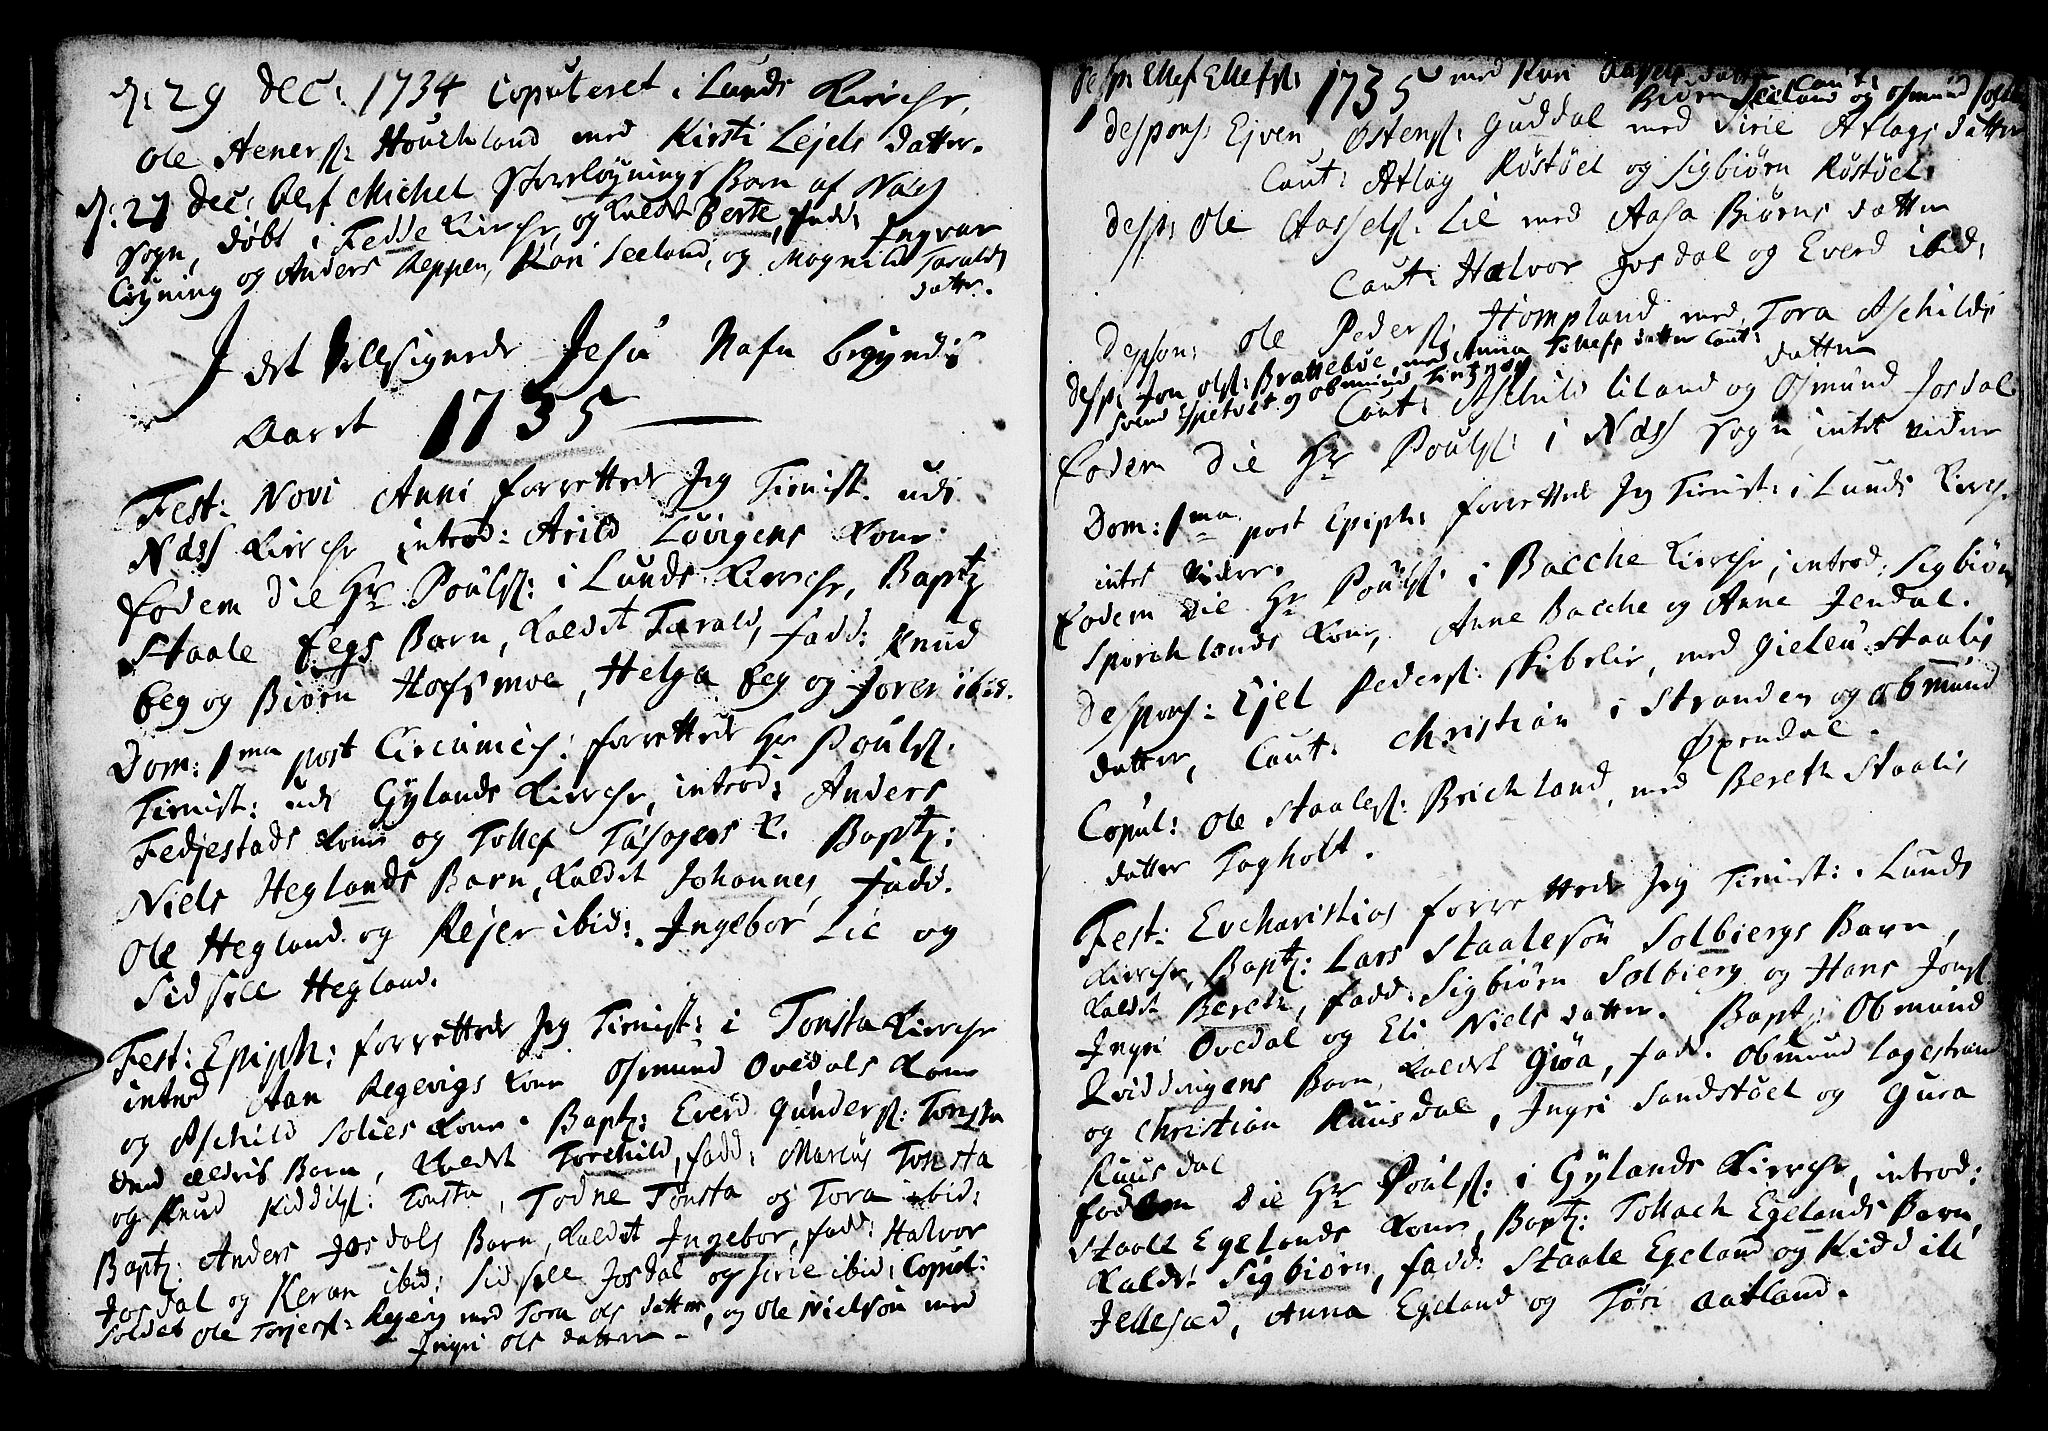 d: 29 Dec: 1734 Copuleret i Lunds Kirche,
Ole Aenersk: Houchland med Kirsti Lejels datter.
d: 27 Dec: blef Michel Barn af Næs
Sogn, døbt i Fedde Kirche, og kaldt Berte, fadd: Ingvar
og Anders Reppen, Kari Seeland, og Magnild Taralds
datter.
I det Velsignede Jesu Nafn begyndis
Aaret 1735
Fest: Novi Anni forrettede Jeg Tienist. udi
Næss Kirche introd: Arild Løvigens Kone.
Eodem die Hr. Poulss: i Lunds Kirche, Baptz
Staale Eegs Barn, kaldet Tarald, fadd: Knud
Eeg og Biørn Hofsmoe, Helga Eeg og Joren ibid.
Dom: 1ma post Circumcis: forrettede Hr Poulss.
Tienist: udi Gylands Kirche, introd: Anders
Fedjestads Kone og Tollef K. Baptz:
Niels Heglands Barn, kaldet Johannes, fadd.
Ole Hegland og Rejer ibid: Ingebor Lie og
Sidsele Hegland.
Fest: Epiph: forrettede Jeg Tienist: i Tonsta Kirche
introd Aan Regevigs Kone Osmund Ovedals Kone
og Aschild Solies Kone. Baptz: Everd Gunderss: Tonsta
ældris Barn, kaldet Torchild, fadd: Marcus Tonsta
og Knud Kiddilss: Tonsta, Todne Tonsta og Tora ibid:
Baptz: Anders Josdals Barn, kaldet Ingebor, fadd: Halvor
Josdal og Keran ibid: Sidsele Josdal og Sirie ibid: Copul:
Soldat Ole Torjerss: Regevig med Tora Ols datter, og Ole Nielsøn med
Ingri Ols datter.
desp: Ellef Ellefss: 1735 med Kari datter Caut:
Seeland og Osmund
despons: Ejven Østenss: Guddal med Sirie Atlags datter
Caut: Atlag Røstøel og Sigbiørn Røstøel.
desp: Ole Aasselss. Lie med Aasa Biørns datter
Caut: Halvor Josdal og Everd ibid:
despon: Ole Pederss: Hompland med Tora Aschilds
datter
desp: Jon Olss: Brattebøe, med Anna Tollefs datter Caut:
Svend Espetvet og Obmund
Caut: Aschild Eiland og Osmund Josdal
Eodem die Hr Poulss: i Næss Sogn, intet videre
Dom: 1ma post Epiph: forrettede Jeg Tienist: i Lunds Kirche
intet videre.
Eodem die Hr Poulss: i Bacche Kirche, introd: Sigbiørn
Sporchlands Kone, Anne Bacche og Anne Jendal.
despons: Ejel Pederss: Skibelie, med Gielen Staalis
datter, Caut: Christian i Stranden og Obmund
Øxendal.
Copul: Ole Staaless: Brichland, med Bereth Staalis
datter Tagholt.
Fest: Eucharistias forrettede Jeg Tienist: i Lunds
Kirche, Baptz: Lars Staalesøn Solbiergs Barn,
kaldet Bereth, fadd: Sigbiørn Solbierg og Hans Jonss.
Ingri Ovedal og Eli Niels datter. Baptz: Obmund
Qviddingens Barn, kaldet Giøa, fadd. Obmund Lagestrand
og Christian Ruusdal, Ingri Sandstøel og Gura
Ruusdal
Eodem die Hr Poulss: i Gylands Kirche, introd:
Staale Egelands Kone, Baptz: Tollach Egelands Barn,
kaldet Sigbiørn, fadd: Staale Egeland og Kiddill
Jellesæd, Anna Egeland og Tøri Aatland.